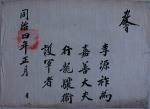 教
李源祚為
嘉善大夫
行龍驤衛
護軍者
同治四年正月　日